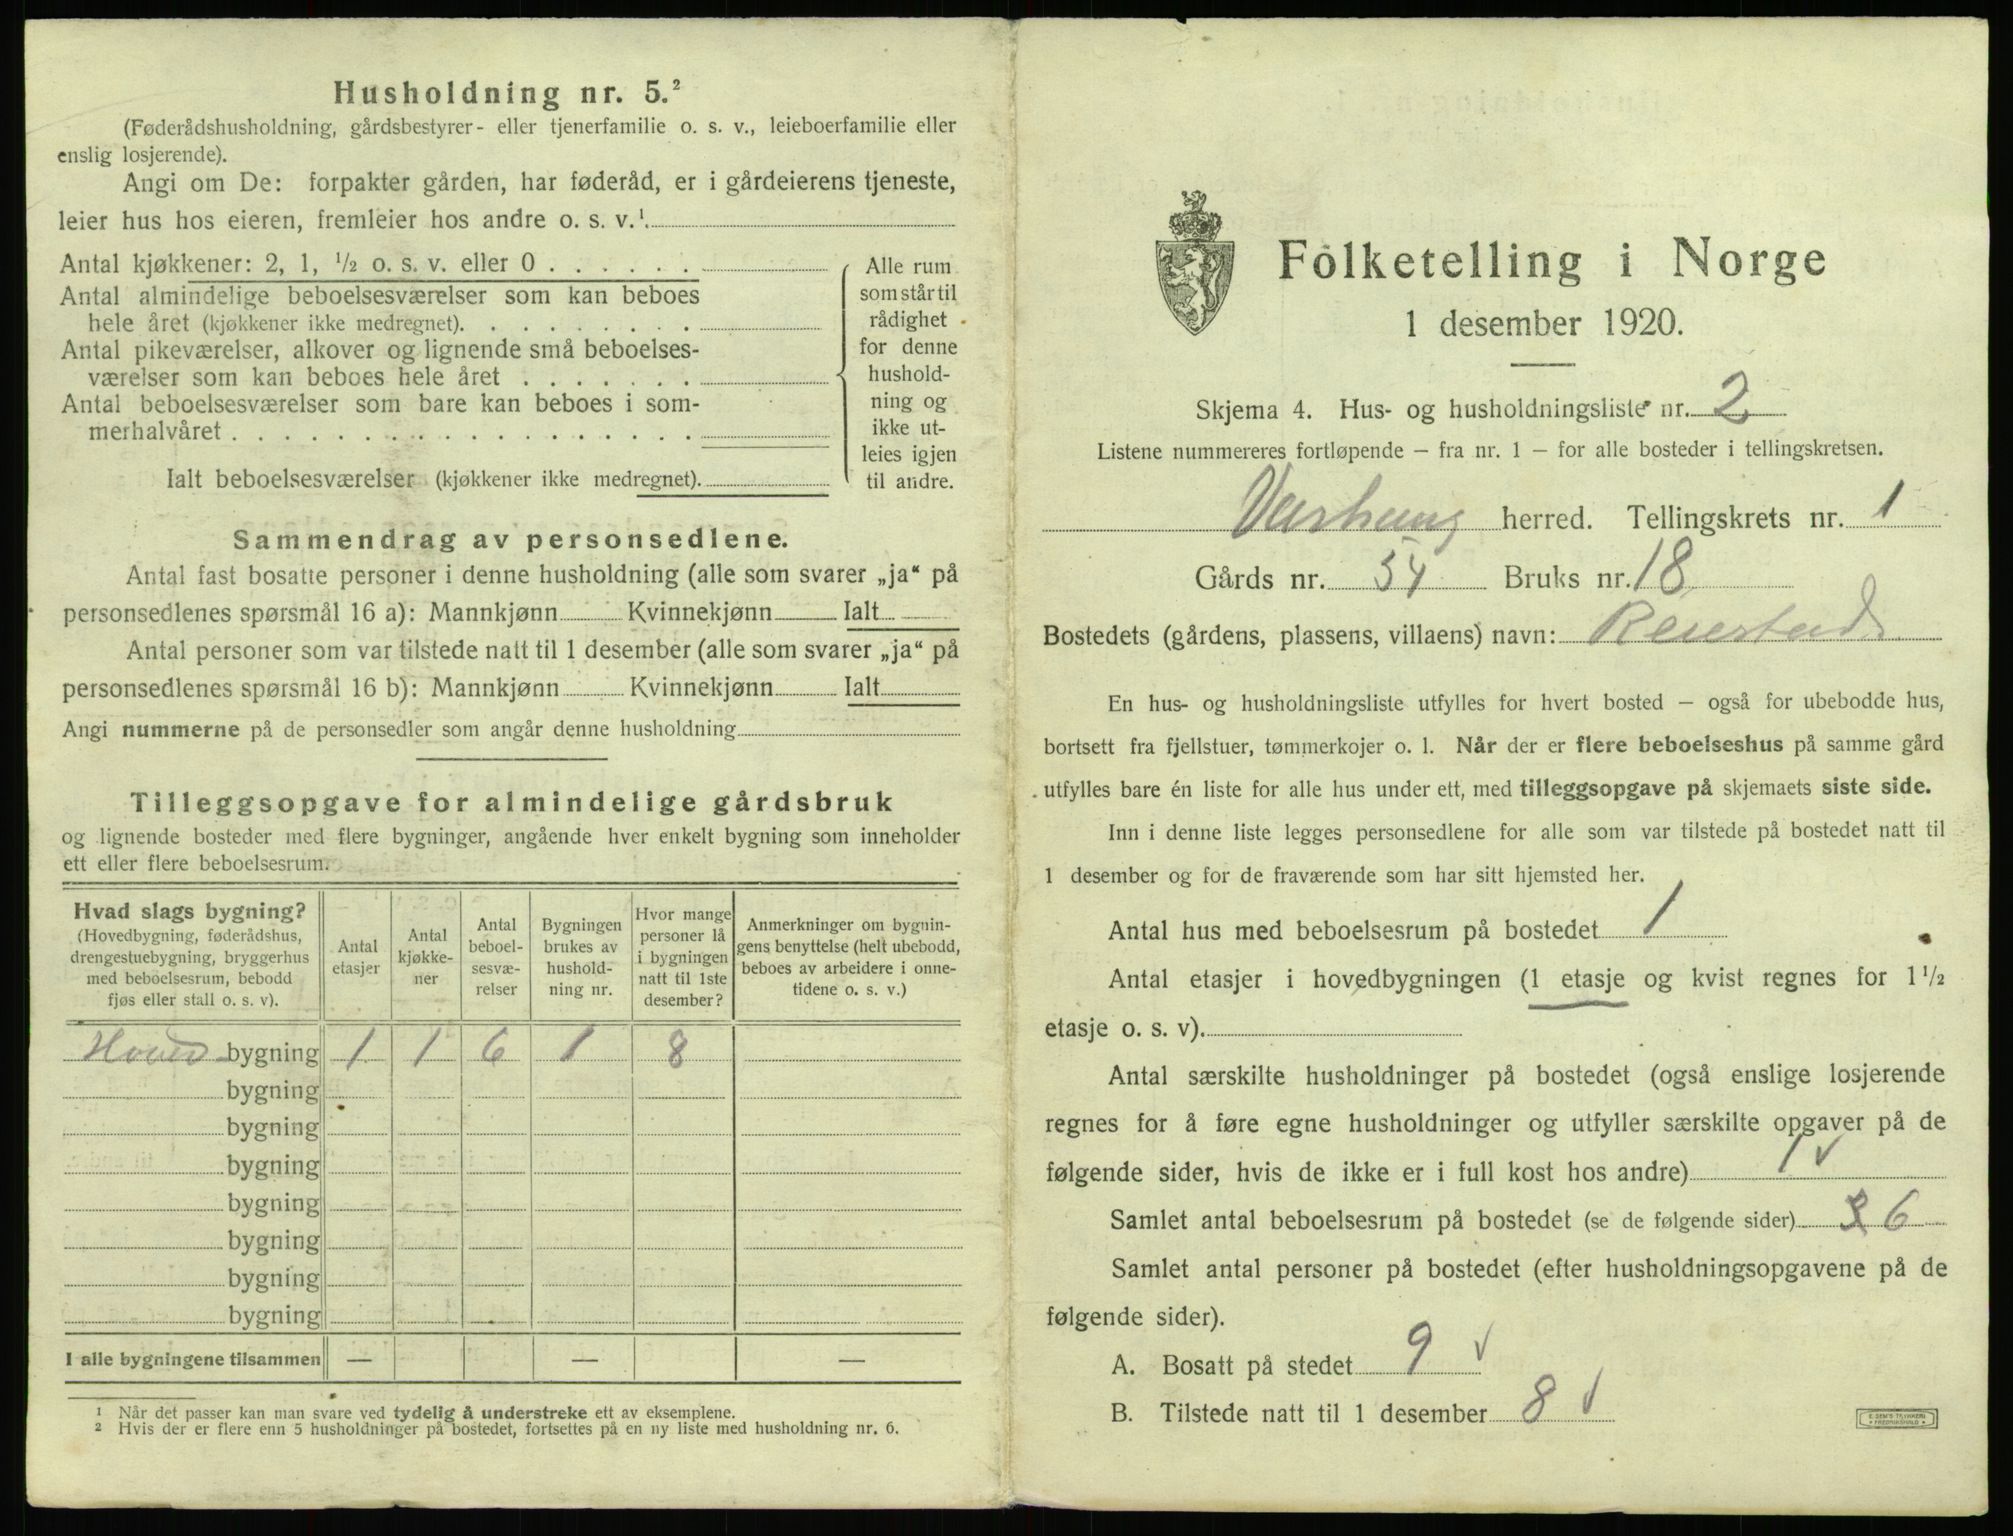 Husholdning nr. 5.²
(Føderådshusholdning, gårdsbestyrer- eller tjenerfamilie o. s. v., leieboerfamilie eller
enslig losjerende).
Angi om De: forpakter gården, har føderåd, er i gårdeierens tjeneste,
leier hus hos eieren, fremleier hos andre o. s. v.¹
Antal kjøkkener: 2, 1, ½ o. s. v. eller 0 . . . . . .
Antal almindelige beboelsesværelser som kan beboes
hele året (kjøkkener ikke medregnet). . . . . . . . .
Antal pikeværelser, alkover og lignende små beboelses-
værelser som kan beboes hele året . . . . . . .
Antal beboelsesværelser som bare kan beboes i som-
merhalvåret . . . . . . . . . . . . . . . . . .
Ialt beboelsesværelser (kjøkkener ikke medregnet).
Alle rum
som står til
rådighet
for denne
hushold-
ning og
ikke ut-
leies igjen
til andre.
Sammendrag av personsedlene.
Antal fast bosatte personer i denne husholdning (alle som svarer „ja“ på
personsedlenes spørsmål 16 a): Mannkjønn Kvinnekjønn Ialt
Antal personer som var tilstede natt til 1 desember (alle som svarer „ja“ på
personsedlenes spørsmål 16 b): Mannkjønn Kvinnekjønn Ialt
Angi nummerne på de personsedler som angår denne husholdning
Tilleggsopgave for almindelige gårdsbruk
og lignende bosteder med flere bygninger, angående hver enkelt bygning som inneholder
ett eller flere beboelsesrum.
Hvad slags bygning?
(Hovedbygning, føderådshus,
drengestuebygning, bryggerhus
med beboelsesrum, bebodd
fjøs eller stall o. s. v).
Antal
etasjer
Antal
kjøkke-
ner
Antal
beboel-
sesvæ-
relser
Bygningen
brukes av
hushold-
ning nr.
Hvor mange
personer lå
i bygningen
natt til 1ste
desember?
Anmerkninger om bygnin-
gens benyttelse (helt ubebodd,
beboes av arbeidere i onne-
tidene o. s. v.)
Hoved bygning 1 1 6 1 8
bygning
bygning
bygning
bygning
bygning
bygning
bygning
I alle bygningene tilsammen — — —
¹ Når det passer kan man svare ved tydelig å understreke ett av eksemplene.
² Hvis der er flere enn 5 husholdninger på bostedet, fortsettes på en ny liste med husholdning nr. 6.
Folketelling i Norge
1 desember 1920.
Skjema 4. Hus- og husholdningsliste nr. 2
Listene nummereres fortløpende – fra nr. 1 – for alle bosteder i tellingskretsen.
Varhaug herred. Tellingskrets nr. 1
Gårds nr. 54 Bruks nr. 18
Bostedets (gårdens, plassens, villaens) navn: Reiestad
En hus- og husholdningsliste utfylles for hvert bosted – også for ubebodde hus,
bortsett fra fjellstuer, tømmerkojer o. l. Når der er flere beboelseshus på samme gård
utfylles bare én liste for alle hus under ett, med tilleggsopgave på skjemaets siste side.
Inn i denne liste legges personsedlene for alle som var tilstede på bostedet natt til
1 desember og for de fraværende som har sitt hjemsted her.
Antal hus med beboelsesrum på bostedet 1
Antal etasjer i hovedbygningen (1 etasje og kvist regnes for 1½
etasje o. s. v).
Antal særskilte husholdninger på bostedet (også enslige losjerende
regnes for å føre egne husholdninger og utfyller særskilte opgaver på de
følgende sider, hvis de ikke er i full kost hos andre) 1 √
Samlet antal beboelsesrum på bostedet (se de følgende sider) 6
Samlet antal personer på bostedet (efter husholdningsopgavene på de
følgende sider).
A. Bosatt på stedet 9 √
B. Tilstede natt til 1 desember 8 √
E. SEM'S TRYKKERI
FREDRIKSHALD